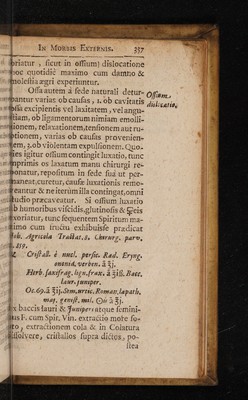 IN MORBIS EXTERNIS. 357
oriatur, sicut in ossium dislocatione
hoc quotidie maximo cum damno &
molestia ægri experiuntur.
Ossa autem à sede naturali detur-
bantur varias ob causas, 1. ob cavitatis
ossa excipientis vel laxitatem, vel angu-
stiam, ob ligamentorum nimiam emolli-
tionem, relaxationem, tensionem aut ru-
ptionem, varias ob causas provenien-
tem, 3. ob violentam expulsionem. Quo-
ties igitur ossium contingit luxatio, tunc
imprimis os luxatum manu chirurgi re-
ponatur, repositum in sede sua ut per-
maneat, curetur, causæ luxationis remo-
veantur & ne iterùm illa contingat, omni
studio præcaveatur. Si ossium luxatio
ab humoribus viscidis, glutinosis &
exoriatur, tunc sequentem Spiritum ma-
ximo cum fructu exhibuisse prædicat
Agricola Tractat. 1. Chirurg. parv.
Ossium
dislocatio.
Rad. Eryng.
verben.
Herb. saxifrag. lign. fraxi. Bacc.
laur. juniper.
Sem. urtic. Roman. lapath.
maj. genist. mil.
baccis lauri & Juniperi atque semini-
F. cum Spir. Vin. extractio more so-
extractionem cola & in Colatura
dissolvere, cristallos supra dictos, po-
stea